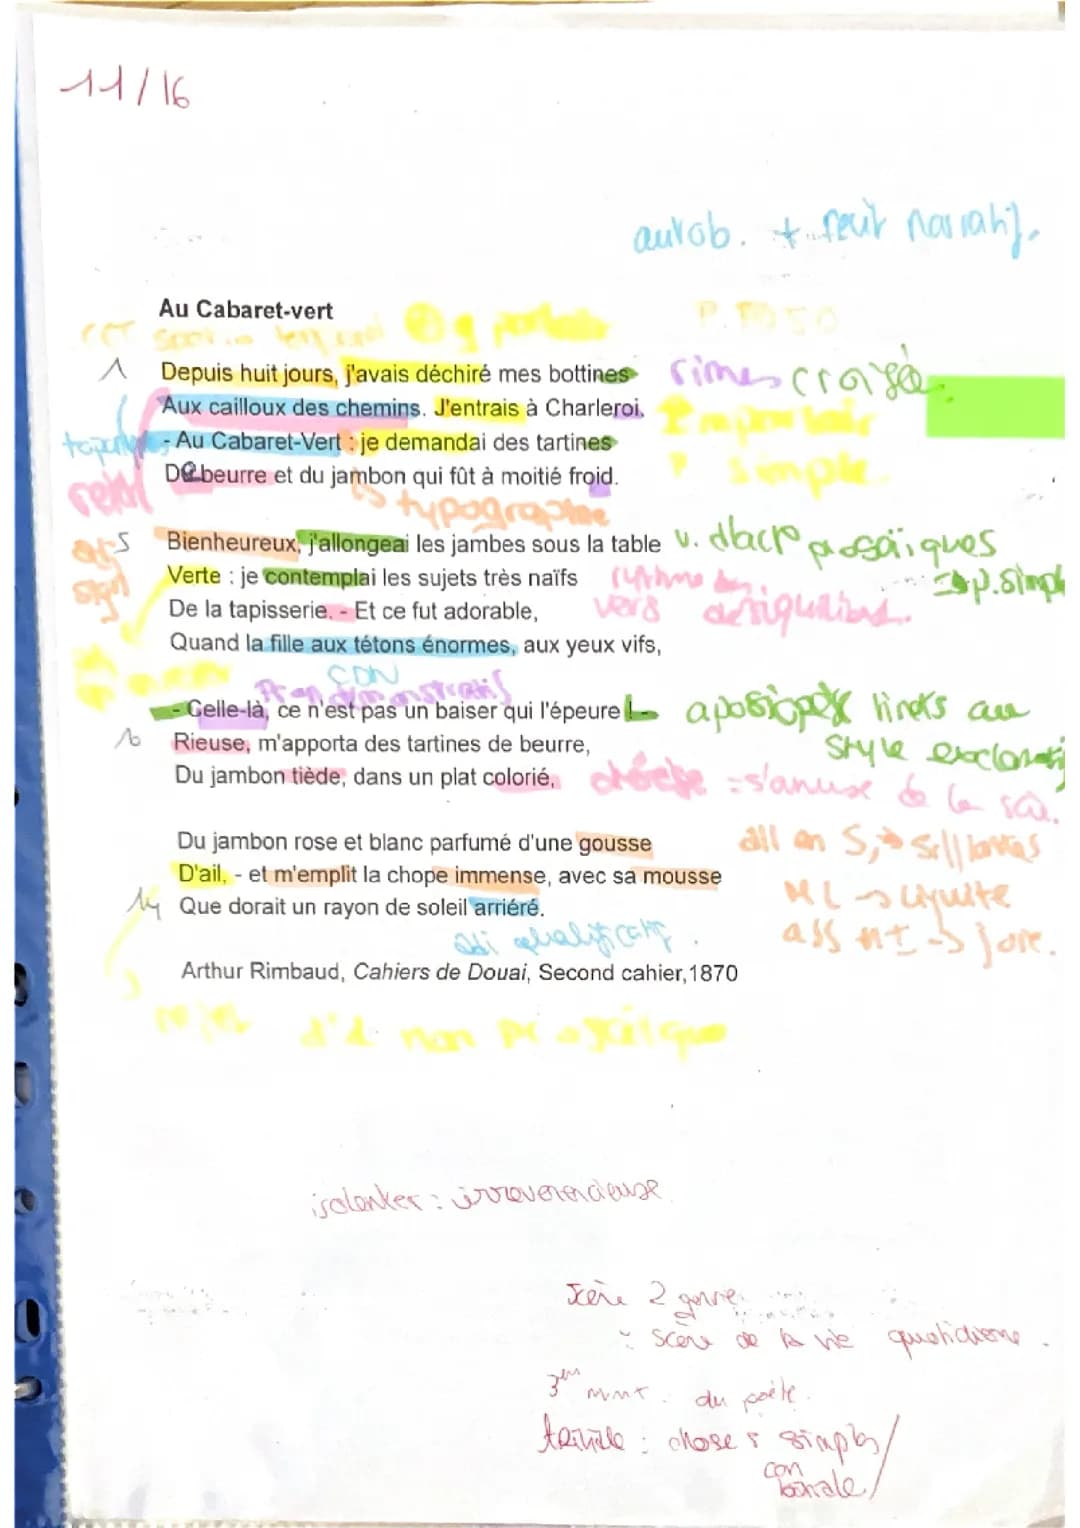 11/16
autob. + récit narratif.
Au Cabaret-vert
CCT
P. TOSO
1 Depuis huit jours, j'avais déchiré mes bottines rimes croisée.
Aux cailloux des chemins. J'entrais à Charleroi. Imparfait
- Au Cabaret-Vert : je demandai des tartines
De beurre et du jambon qui fût à moitié froid. simple
rejet
typographie
5 Bienheureux, j'allongeai les jambes sous la table v. d'acp prosaïques
Verte : je contemplai les sujets très naïfs rythme => p. simple
De la tapisserie. - Et ce fut adorable, vers
Quand la fille aux tétons énormes, aux yeux vifs,
CDN
démonstratif
- Celle-là, ce n'est pas un baiser qui l'épeure ! - aposiopèse tirets au
10 Rieuse, m'apporta des tartines de beurre, style exclamatif
Du jambon tiède, dans un plat colorié, = s'amuse de la
Du jambon rose et blanc parfumé d'une gousse all en S,
D'ail, - et m'emplit la chope immense, avec sa mousse ML -> liquite
14 Que dorait un rayon de soleil arriéré. ass -> joie.
adj qualificatif.
Arthur Rimbaud, Cahiers de Douai, Second cahier,1870
rejet d'd non prosaïque
: irreverencieuse
2 genre
: scène de la vie quotidiene.
3em mvnt. du poète.
triviale : choses simples/
con
banale/